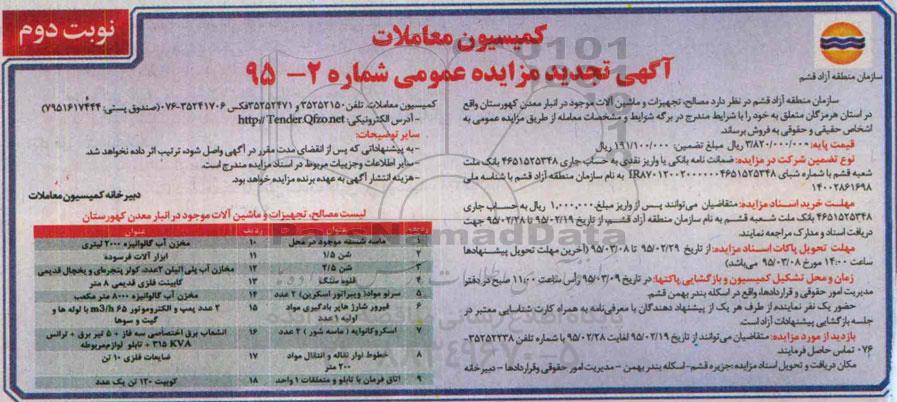 نوبت دوم
کمیسیون معاملات
آگهی تجدید مزایده عمومی شماره ۲- ۹۵
سازمان منطقه آزاد قشم
سازمان منطقه آزاد قشم در نظر دارد مصالح، تجهیزات و ماشین آلات موجود در انبار معدن کهورستان واقع
در استان هرمزگان متعلق به خود را با شرایط مندرج در برگه شرایط و مشخصات معامله از طریق مزایده عمومی به
اشخاص حقیقی و حقوقی به فروش برساند.
قیمت پایه: ۳/۸۲۰/۰۰۰/۰۰۰ ریال مبلغ تضمین: ۱۹۱/۱۰۰/۰۰۰ ریال
نوع تضمین شرکت در مزایده: ضمانت نامه بانکی یا واریز نقدی به حساب جاری ۴۶۵۱۵۲۵۳۴۸ بانک ملت
شعبه قشم با شماره شبای IR۸۷۰۱۲۰۰۲۰۰۰۰۰۰۴۶۵۱۵۲۵۳۴۸ به نام سازمان منطقه آزاد قشم با شناسه ملی
۱۴۰۰۲۸۶۱۶۹۸
مهلت خرید اسناد مزایده: متقاضیان می‌توانند پس از واریز مبلغ ۱,۰۰۰,۰۰۰ ریال به حساب جاری
۴۶۵۱۵۲۵۳۴۸ بانک ملت شعبه قشم به نام سازمان منطقه آزاد قشم، از تاریخ ۹۵/۰۲/۱۹ تا ۹۵/۰۲/۲۸ جهت
دریافت اسناد و مدارک مراجعه نمایند.
مهلت تحویل پاکات اسناد مزایده: از تاریخ ۹۵/۰۲/۲۹ تا ۹۵/۰۳/۰۸ (آخرین مهلت تحویل پیشنهادها
ساعت ۱۴:۰۰ مورخ ۹۵/۰۳/۰۸ می‌باشد)
زمان و محل تشکیل کمیسیون و بازگشایی پاکتها: در تاریخ ۹۵/۰۳/۰۹ رأس ساعت ۱۱:۰۰ صبح در دفتر
مدیریت امور حقوقی و قراردادها، واقع در اسکله بندر بهمن قشم.
حضور یک نفر نماینده از طرف هر یک از پیشنهاد دهندگان با معرفی‌نامه به همراه کارت شناسایی معتبر در
جلسه بازگشایی پیشنهادات آزاد است.
بازدید از مورد مزایده: متقاضیان می‌توانند از تاریخ ۹۵/۰۲/۱۹ لغایت ۹۵/۰۲/۲۸ با شماره تلفن ۳۵۲۵۲۲۳۸-
۰۷۶ تماس حاصل فرمایند.
مکان دریافت و تحویل اسناد مزایده: جزیره قشم- اسکله بندر بهمن - مدیریت امور حقوقی و قراردادها - دبیرخانه
کمیسیون معاملات. تلفن ۳۵۲۵۲۱۵۰ و ۳۵۲۵۲۴۷۱ فکس ۳۵۲۴۱۷۰۶-۰۷۶ (صندوق پستی: ۷۹۵۱۶۱۷۴۴۴)
- آدرس الکترونیکی: http//Tender.Qfzo.net
سایر توضیحات:
- به پیشنهاداتی که پس از انقضای مدت مقرر در آگهی واصل شود، ترتیب اثر داده نخواهد شد.
- سایر اطلاعات و جزییات مربوط در اسناد مزایده مندرج است.
- هزینه انتشار آگهی به عهده برنده مزایده خواهد بود.
دبیرخانه کمیسیون معاملات
لیست مصالح، تجهیزات و ماشین آلات موجود در انبار معدن کهورستان
ردیف عنوان ردیف عنوان
۱ ماسه شسته موجود در محل ۱۰ مخزن آب گالوانیزه ۲۰۰۰ لیتری
۲ شن ۱/۵ ۱۱ ابزار آلات فرسوده
۳ شن ۲/۵ ۱۲ مخازن آب پلی اتیلن ۲عدد، کولر پنجره‌ای و یخچال قدیمی
۴ قلوه سنگ ۱۳ کابینت فلزی قدیمی ۸ متر
۵ سرنو مواد( ویبراتور اسکرین) ۲ عدد ۱۴ مخزن آب گالوانیزه ۸۰۰۰ متر مکعب
۶ فیرور شارژ هاپر بادگیری مواد اولیه ۱عدد ۱۵ ۲ عدد پمپ و الکتروموتور ۶۵ m3/h با لوله ها و گیت و سوها
۷ اسکروکانوایه ( ماسه شور ) ۲ عدد ۱۶ انشعاب برق اختصاصی سه فاز + ۵ تیر برق + ترانس ۳۱۵ KVA + تابلو لوازم‌مربوطه
۸ خطوط نوار نقاله و انتقال مواد ۲۰۰ متر ۱۷ ضایعات فلزی ۱۰ تن
۹ اتاق فرمان با تابلو و متعلقات ۱ واحد ۱۸ کوبیت ۱۲۰ تن یک عدد
ParsNamadData